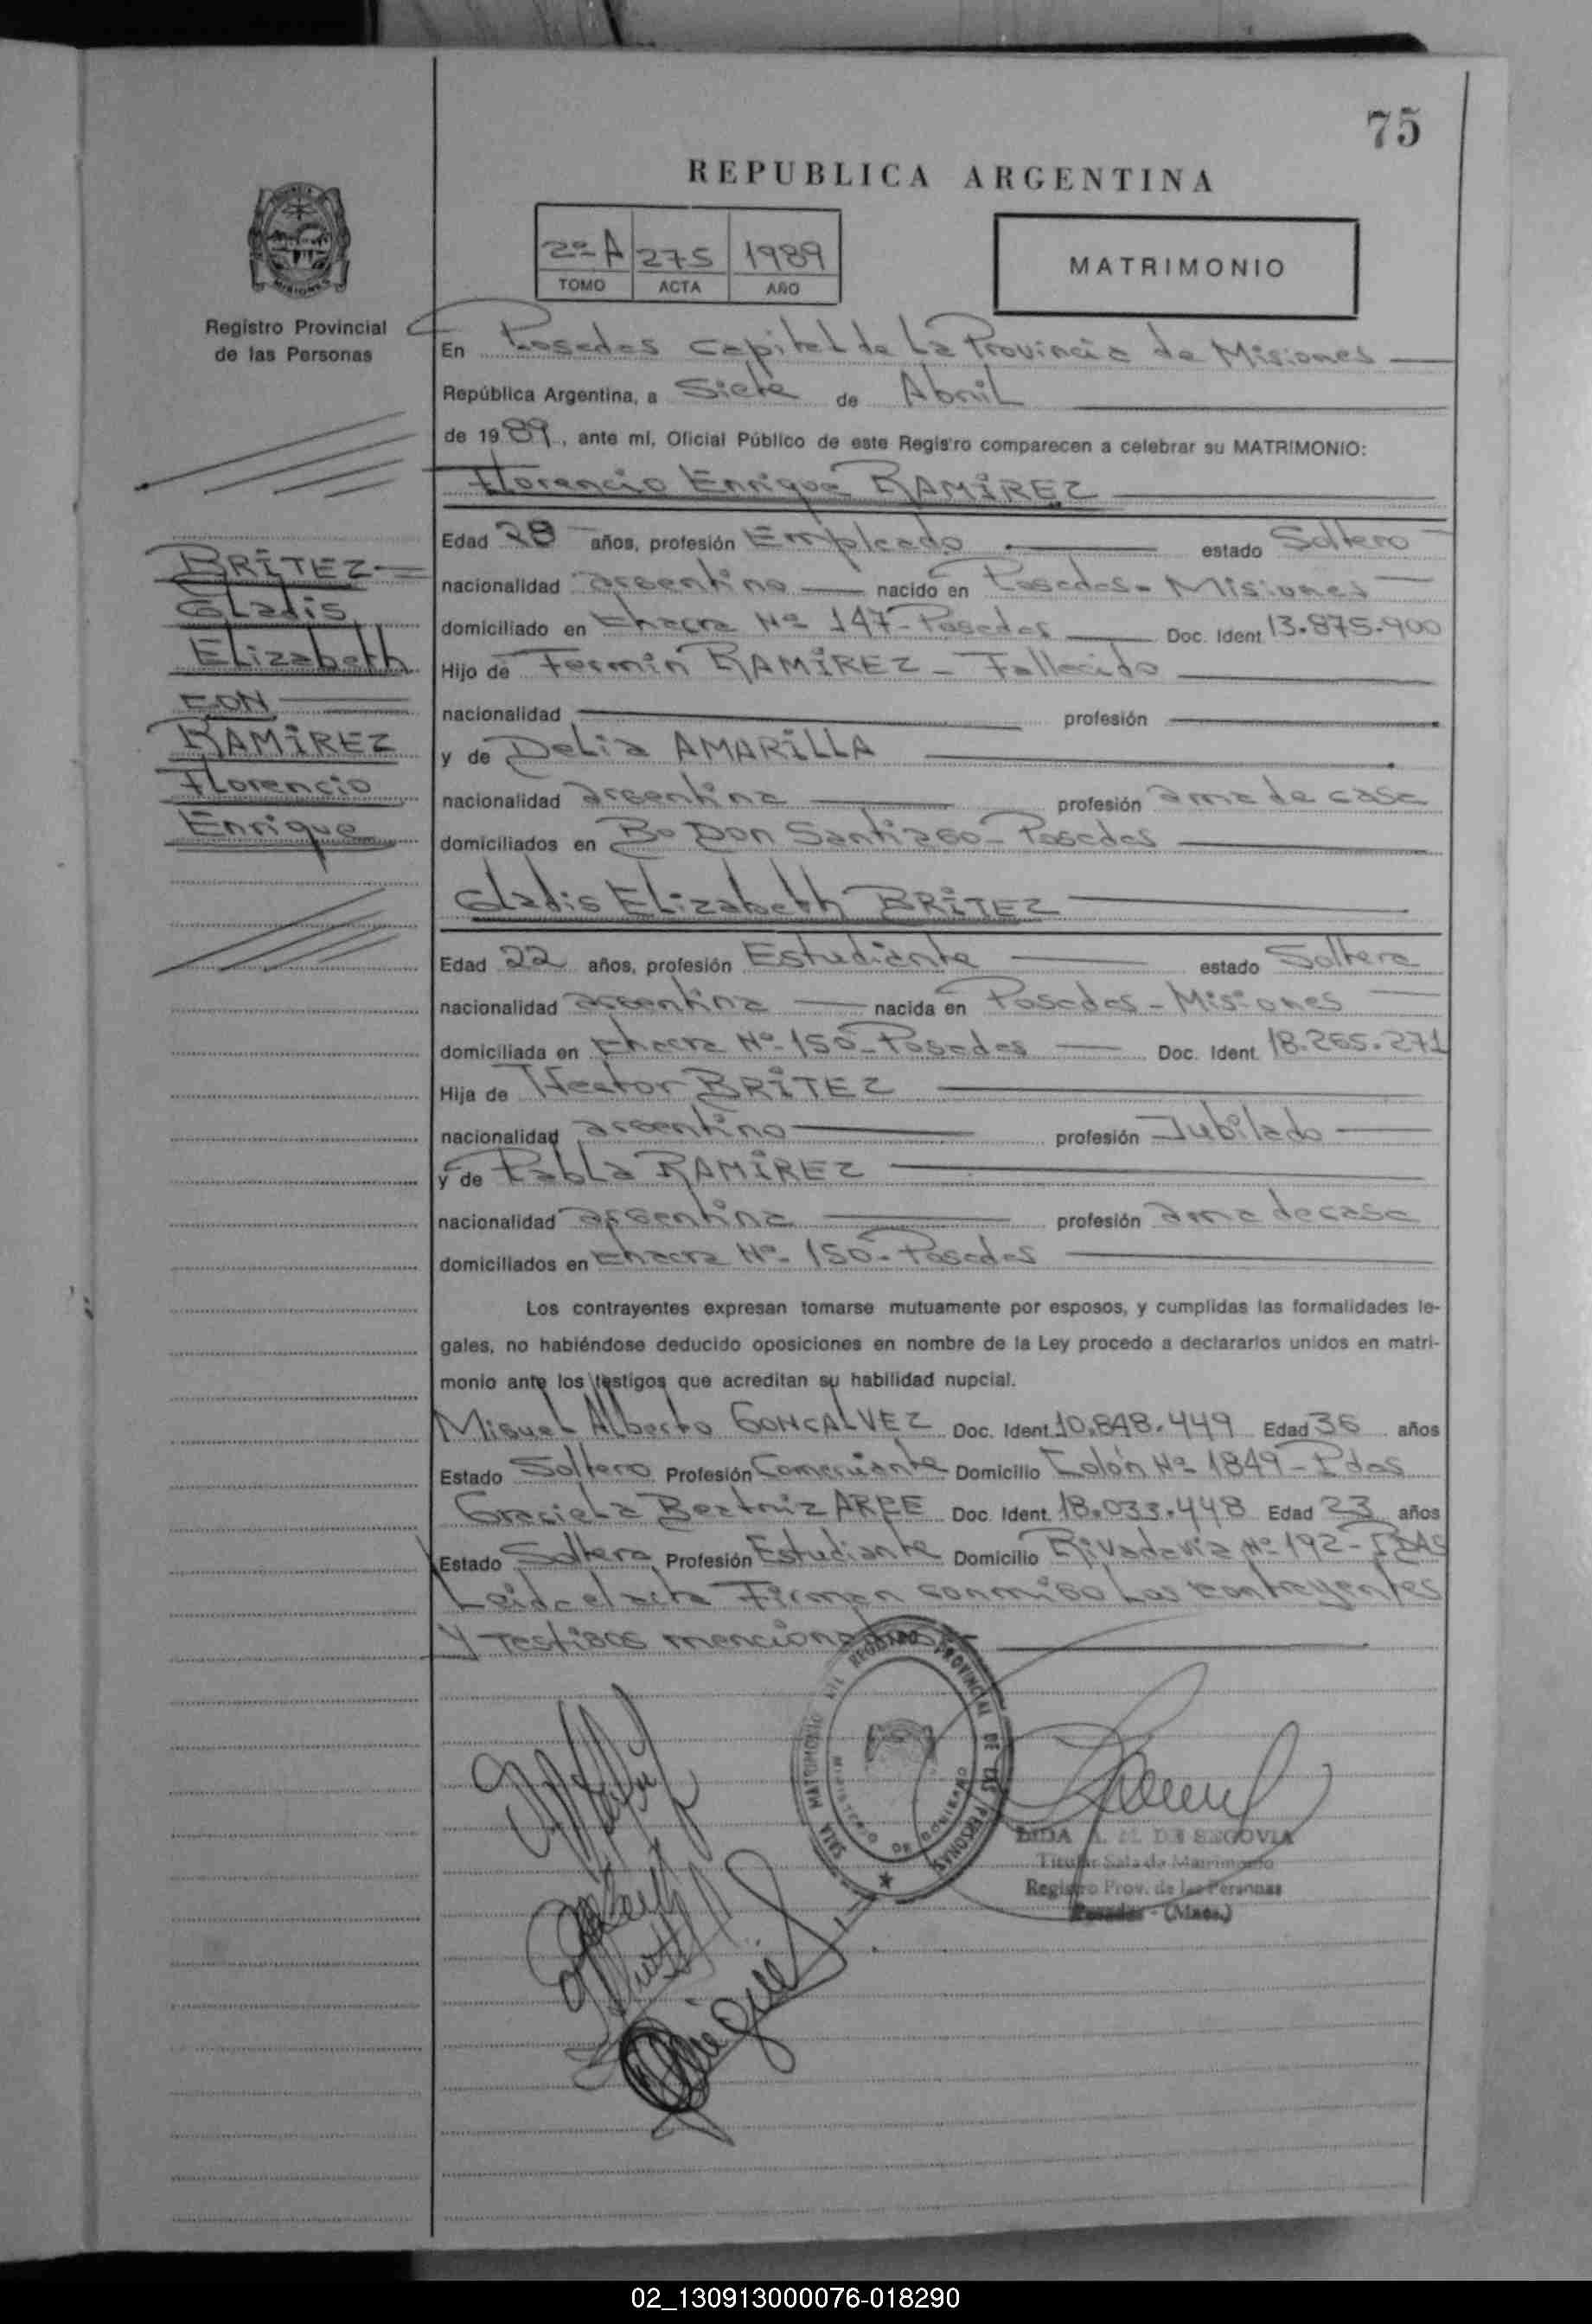 75
REPUBLICA ARGENTINA
2º A 275 1989
TOMO ACTA AÑO
MATRIMONIO
MISIONES
Registro Provincial
de las Personas
En Posadas Capital de La Provincia de Misiones
República Argentina, a Siete de Abril
de 1989, ante mí, Oficial Público de este Registro comparecen a celebrar su MATRIMONIO:
Florencio Enrique RAMÍREZ
Edad 28 años, profesión Empleado estado Soltero
nacionalidad argentino nacido en Posadas - Misiones
domiciliado en Chacra Nº 147 - Posadas Doc. Ident. 13.875.900
Hijo de Fermin RAMÍREZ - Fallecido
nacionalidad profesión
y de Delia AMARILLA
nacionalidad argentina profesión ama de casa
domiciliados en Bº Don Santiago - Posadas
Gladis Elizabeth BRÍTEZ
Edad 22 años, profesión Estudiante estado Soltera
nacionalidad argentina nacida en Posadas - Misiones
domiciliada en Chacra Nº 150 - Posadas Doc. Ident. 18.265.271
Hija de Hector BRÍTEZ
nacionalidad argentino profesión Jubilado
y de Pabla RAMÍREZ
nacionalidad argentina profesión ama de casa
domiciliados en Chacra Nº 150 - Posadas
Los contrayentes expresan tomarse mutuamente por esposos, y cumplidas las formalidades le-
gales, no habiéndose deducido oposiciones en nombre de la Ley procedo a declararlos unidos en matri-
monio ante los testigos que acreditan su habilidad nupcial.
Miguel Alberto GONÇALVEZ Doc. Ident. 10.848.449 Edad 36 años
Estado Soltero Profesión Comerciante Domicilio Colón Nº 1849 - Pdas
Graciela Beatriz Doc. Ident. 18.033.448 Edad 23 años
Estado Soltera Profesión Estudiante Domicilio Rivadavia Nº 192 - PDAS
Leida el acta Firman conmigo Los contrayentes
Y Testigos mencionados
BRÍTEZ
Gladis
Elizabeth
CON
RAMÍREZ
Florencio
Enrique
SALA MATRIMONIO DEL REGISTRO PROVINCIAL DE LAS PERSONAS
MINISTERIO DE GOBIERNO
A. M. DE SEGOVIA
Titular Sala de Matrimonio
Registro Prov. de las Personas
Posadas - (Mnes.)
02_130913000076-018290